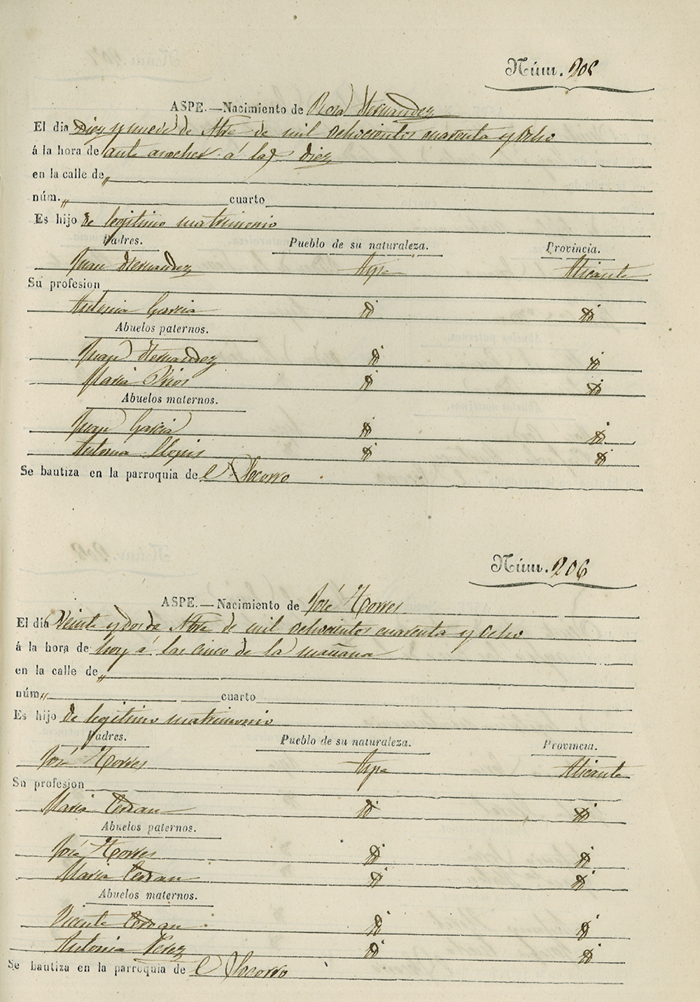 Núm. 205
ASPE.—Nacimiento de Rosa Hernandez
El dia Diez y nueve de Nbre de mil ochocientos cuarenta y Ocho
á la hora de ante anoche á las diez
en la calle de „
núm. „ cuarto
Es hijo de legitimo matrimonio
Padres. Pueblo de su naturaleza. Provincia.
Juan Hernandez Aspe Alicante
Su profesion
Antonia Garcia id id
Abuelos paternos.
Juan Hernandez id id
Maria id id
Abuelos maternos.
Juan Garcia id id
Antonia id id
Se bautiza en la parroquia de El Socorro
Núm. 206
ASPE.—Nacimiento de José Torres
El dia Veinte y dos de Nbre de mil ochocientos cuarenta y Ocho
á la hora de hoy á las cinco de la mañana
en la calle de „
núm „ cuarto
Es hijo de legitimo matrimonio
Padres. Pueblo de su naturaleza. Provincia.
José Torres Aspe Alicante
Su profesion
Maria Cerdan id id
Abuelos paternos.
José Torres id id
Maria Cerdan id id
Abuelos maternos.
Vicente Cerdan id id
Antonia Perez id id
Se bautiza en la parroquia de El Socorro